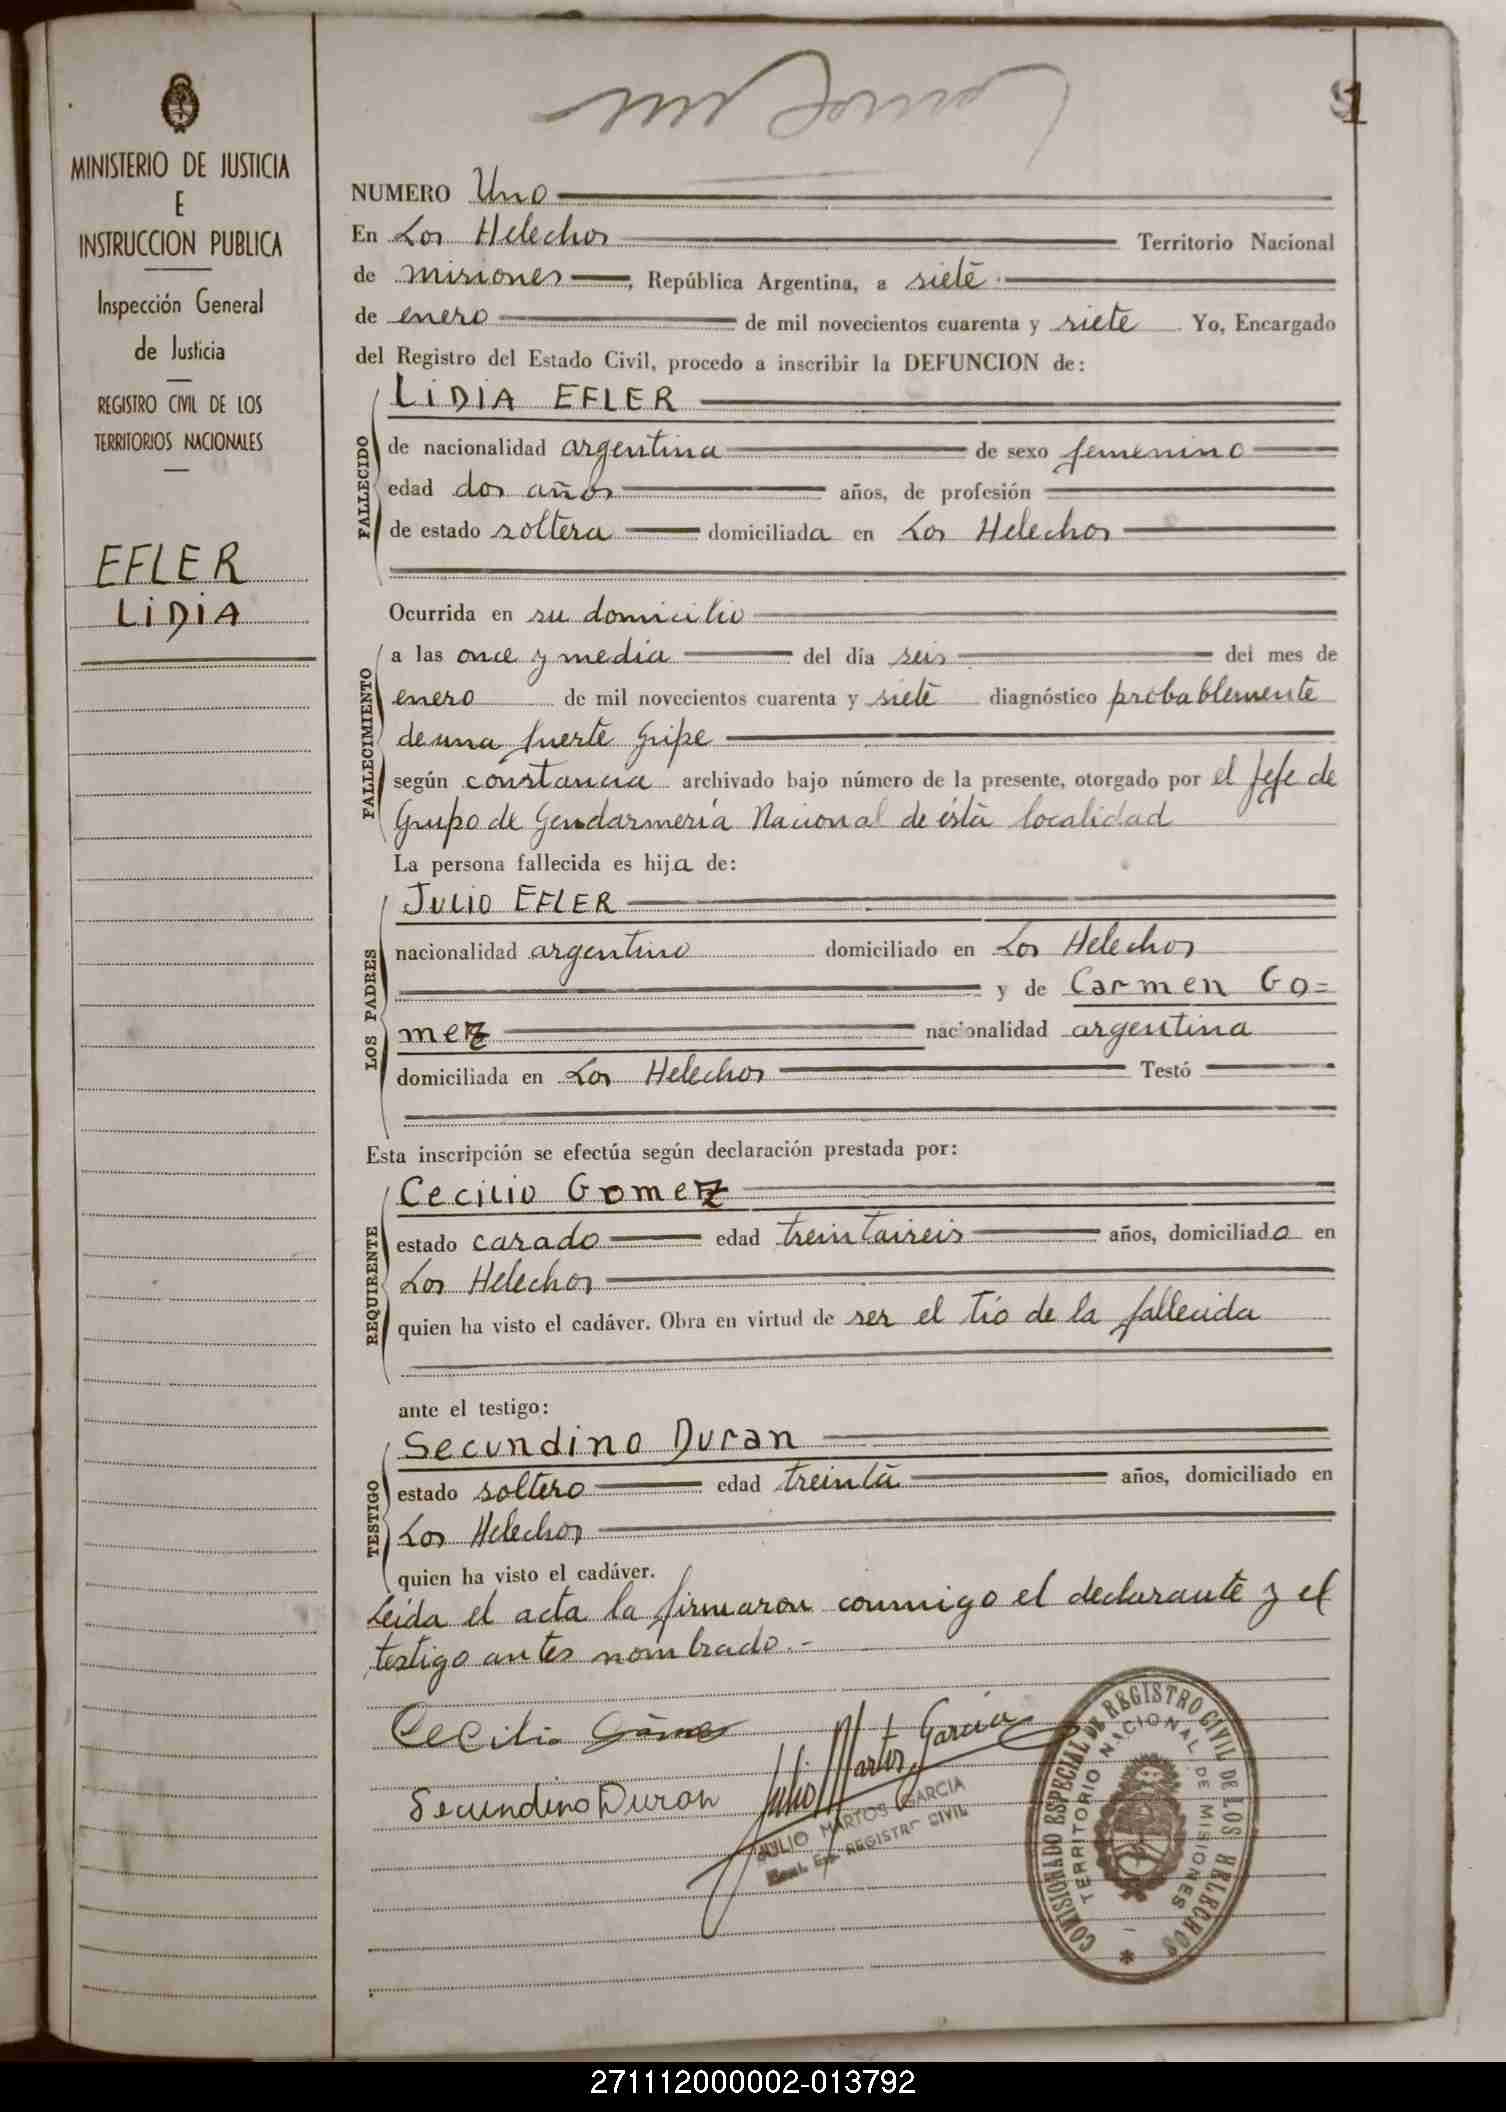 1
MINISTERIO DE JUSTICIA
E
INSTRUCCION PUBLICA
Inspección General
de Justicia
REGISTRO CIVIL DE LOS
TERRITORIOS NACIONALES
EFLER
LIDIA
NUMERO Uno
En Los Helechos Territorio Nacional
de misiones, República Argentina, a siete
de enero de mil novecientos cuarenta y siete. Yo, Encargado
del Registro del Estado Civil, procedo a inscribir la DEFUNCION de:
LIDIA EFLER
FALLECIDO
de nacionalidad argentina de sexo femenino
edad dos años años, de profesión
de estado soltera domiciliada en Los Helechos
Ocurrida en su domicilio
FALLECIMIENTO
a las once y media del día seis del mes de
enero de mil novecientos cuarenta y siete diagnóstico probablemente
de una fuerte gripe
según constancia archivado bajo número de la presente, otorgado por el Jefe de
Grupo de Gendarmería Nacional de ésta localidad
La persona fallecida es hija de:
LOS PADRES
Julio EFLER
nacionalidad argentino domiciliado en Los Helechos
y de Carmen Go=
mez nacionalidad argentina
domiciliada en Los Helechos Testó
Esta inscripción se efectúa según declaración prestada por:
REQUIRENTE
Cecilio Gomez
estado casado edad treintaiseis años, domiciliado en
Los Helechos
quien ha visto el cadáver. Obra en virtud de ser el tío de la fallecida
ante el testigo:
TESTIGO
Secundino Duran
estado soltero edad treinta años, domiciliado en
Los Helechos
quien ha visto el cadáver.
Leida el acta la firmaron conmigo el declarante y el
testigo antes nombrado.-
Cecilio Gómez
Secundino Duran
Julio Martos García
JULIO MARTOS GARCIA
REGISTRO CIVIL
COMISIONADO ESPECIAL DE REGISTRO CIVIL DE LOS HELECHOS
TERRITORIO NACIONAL DE MISIONES
271112000002-013792